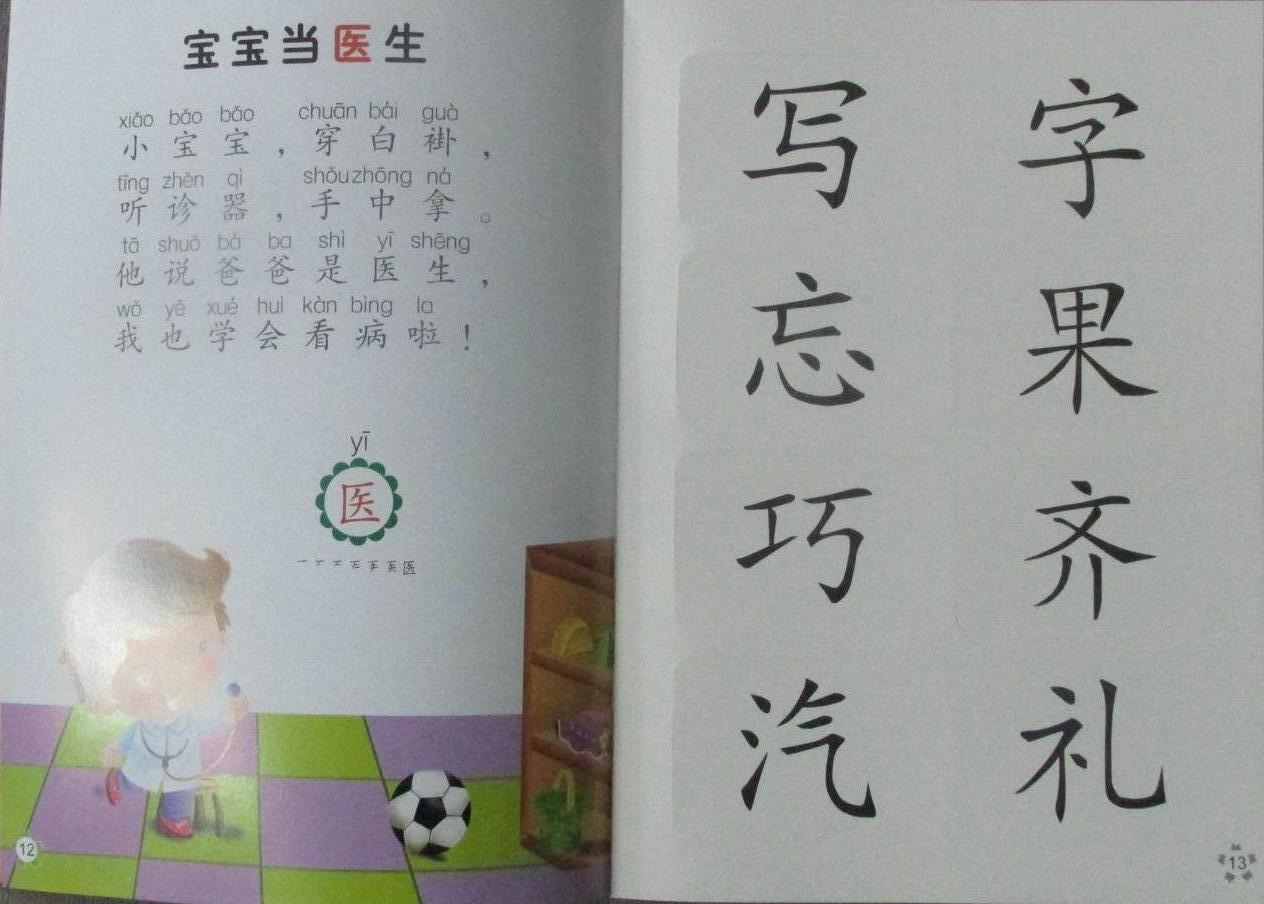 宝宝当医生
xiǎo bǎo bǎo chuān bái guà
小宝宝，穿白褂，
tīng zhěn qì shǒu zhōng ná
听诊器，手中拿。
tā shuō bà ba shì yī shēng
他说爸爸是医生，
wǒ yě xué huì kàn bìng la
我也学会看病啦！
yī
医
12
写 字
忘 果
巧 齐
汽 礼
13